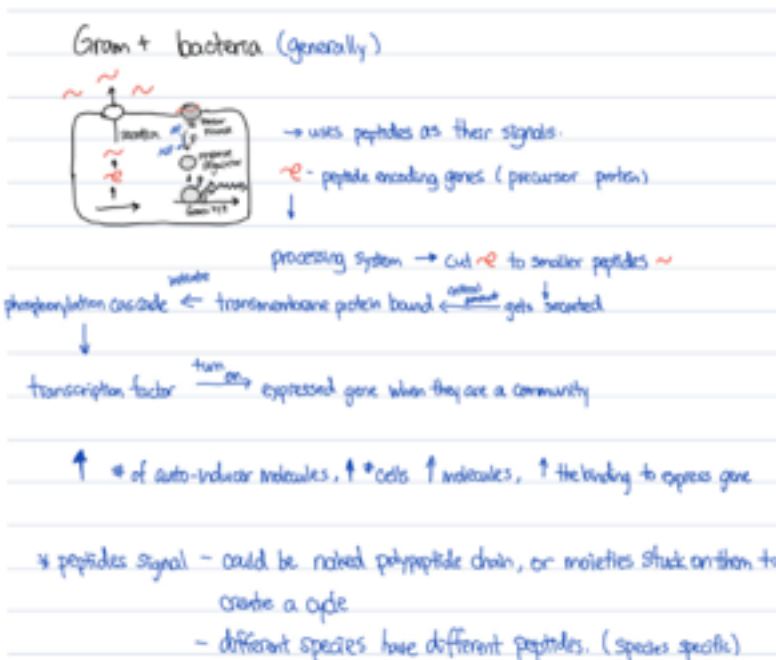 Gram + bacteria (generally)
secretion
sensor kinase
response regulator
→ uses peptides as their signals.
- peptide encoding genes (precursor protein)
↓
processing system → cut to smaller peptides ~
phosphorylation cascade ← initiate transmembrane protein bound ← gets secreted
↓
transcription factor turn on → expressed gene when they are a community
↑ # of auto-inducer molecules, ↑ # cells ↑ molecules, ↑ the binding to express gene
* peptides signal - could be naked polypeptide chain, or moieties stuck on them to
create a cycle
- different species have different peptides. (species specific)